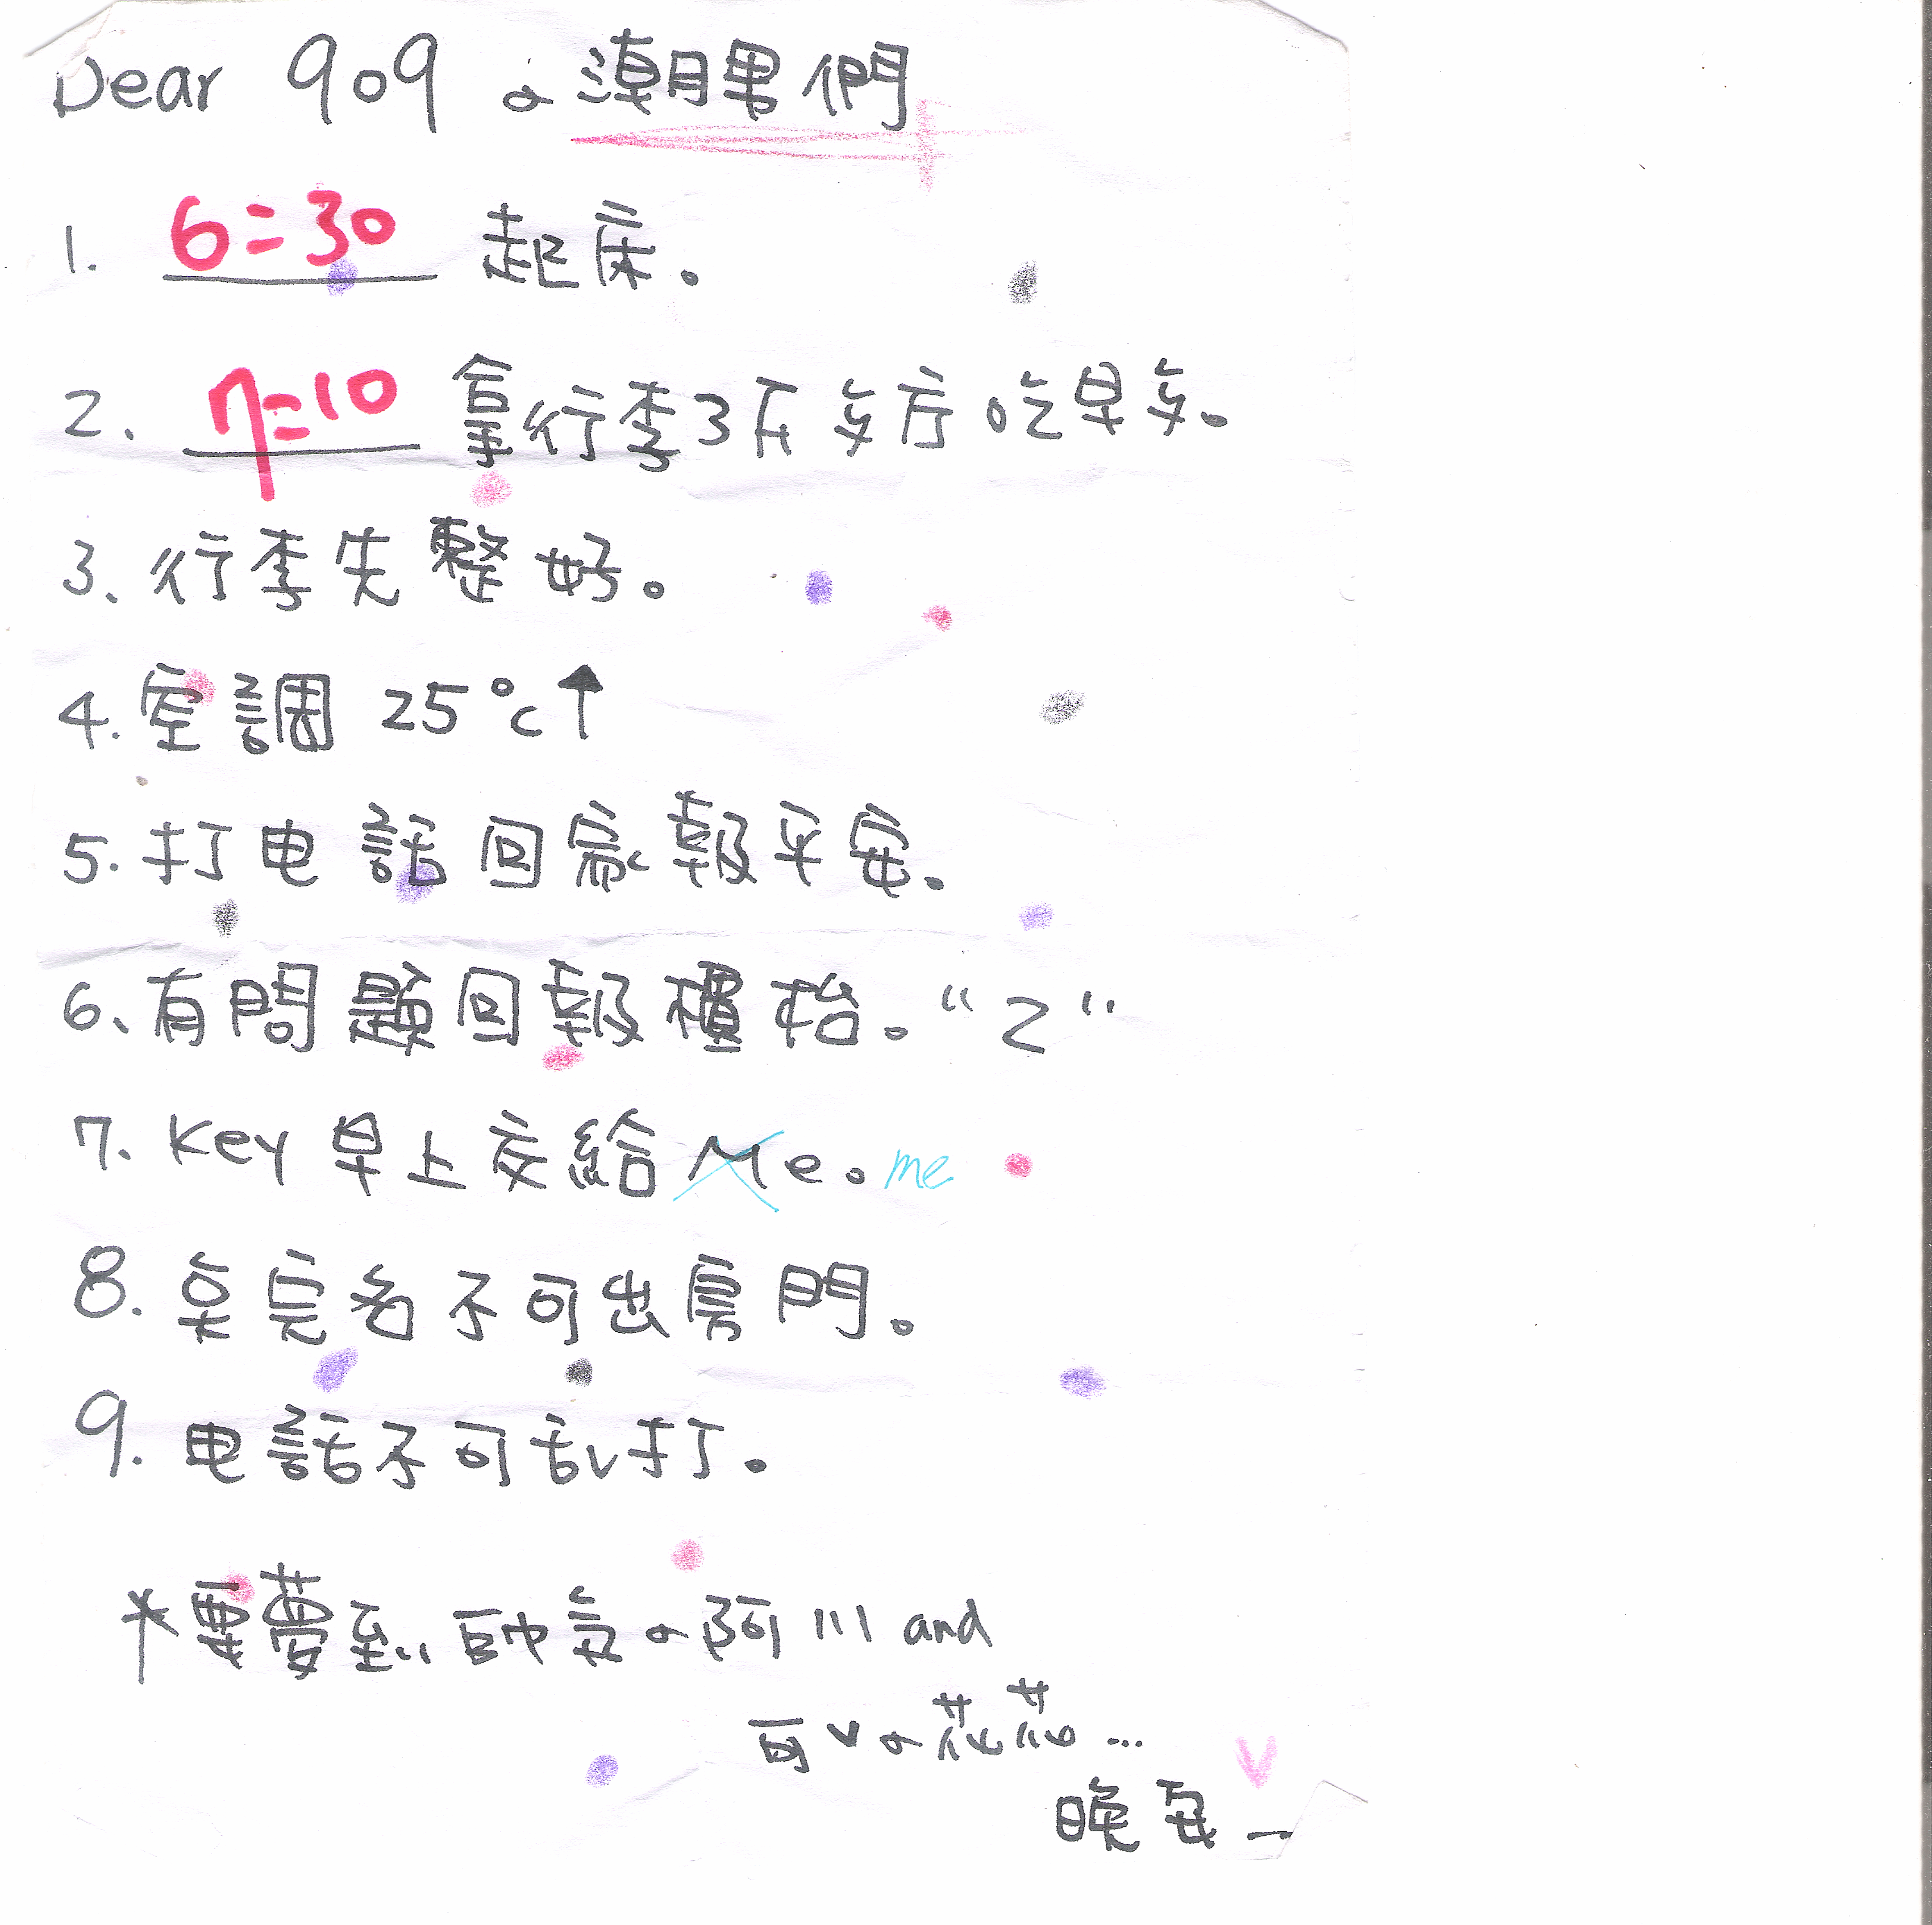 Dear 909 の潮男們
1. 6:30 起床。
2. 7:10 拿行李3F歺厅吃早歺。
3、行李先整好。
4. 空調 25°C↑
5. 打电話回家報平安。
6、有問題回報櫃枱。“2”
7. Key 早上交給 Me。me
8. 奌完名不可出房門。
9. 电話不可乱打。
*要夢到帥氣の阿川 and
可v の花花...
晚安_